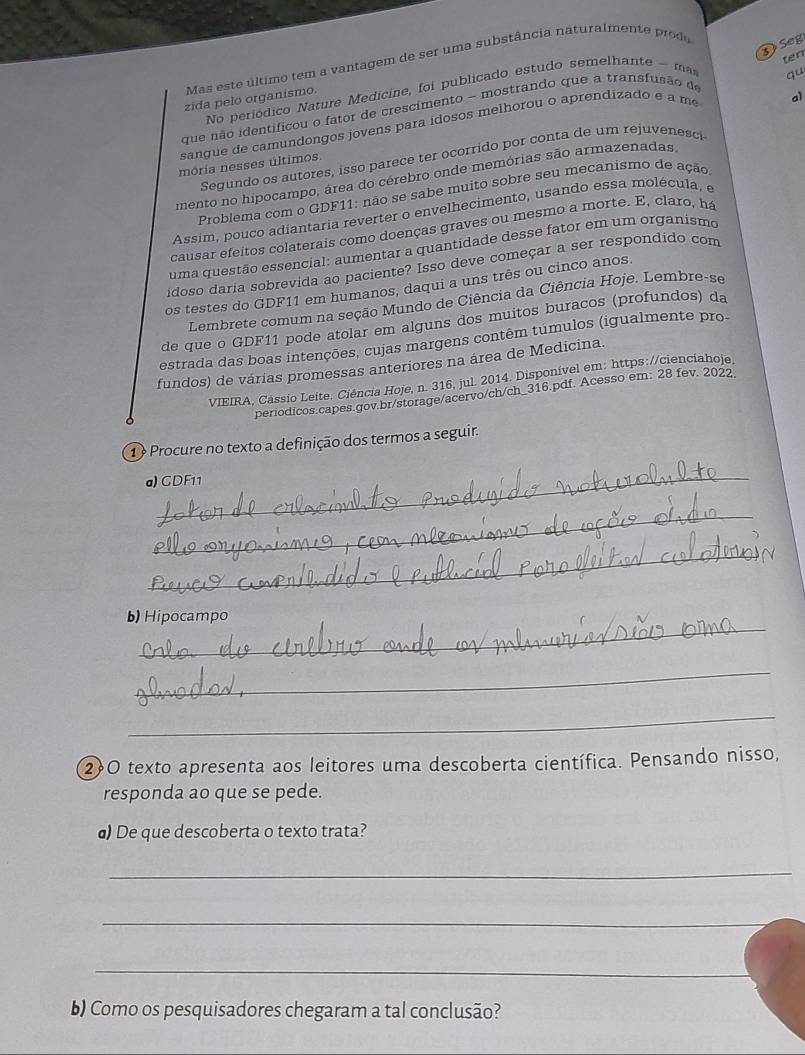 Mas este último tem a vantagem de ser uma substância naturalmente produ
zida pelo organismo.
No periódico Nature Medicine, foi publicado estudo semelhante – mas
que não identificou o fator de crescimento – mostrando que a transfusão de
sangue de camundongos jovens para idosos melhorou o aprendizado e a me
mória nesses últimos.
Segundo os autores, isso parece ter ocorrido por conta de um rejuvenesci-
mento no hipocampo, área do cérebro onde memórias são armazenadas.
Problema com o GDF11: não se sabe muito sobre seu mecanismo de ação.
Assim, pouco adiantaria reverter o envelhecimento, usando essa molécula, e
causar efeitos colaterais como doenças graves ou mesmo a morte. E, claro, há
uma questão essencial: aumentar a quantidade desse fator em um organismo
idoso daria sobrevida ao paciente? Isso deve começar a ser respondido com
os testes do GDF11 em humanos, daqui a uns três ou cinco anos.
Lembrete comum na seção Mundo de Ciência da Ciência Hoje. Lembre-se
de que o GDF11 pode atolar em alguns dos muitos buracos (profundos) da
estrada das boas intenções, cujas margens contêm túmulos (igualmente pro-
fundos) de várias promessas anteriores na área de Medicina.
VIEIRA, Cássio Leite. Ciência Hoje, n. 316, jul. 2014. Disponível em: https://cienciahoje.
periodicos.capes.gov.br/storage/acervo/ch/ch_316.pdf. Acesso em: 28 fev. 2022.
1 Procure no texto a definição dos termos a seguir.
a) GDF11
produzido
de
e
b) Hipocampo
do onde
2 O texto apresenta aos leitores uma descoberta científica. Pensando nisso,
responda ao que se pede.
a) De que descoberta o texto trata?
b) Como os pesquisadores chegaram a tal conclusão?
3 Seg
ter
qu
a)